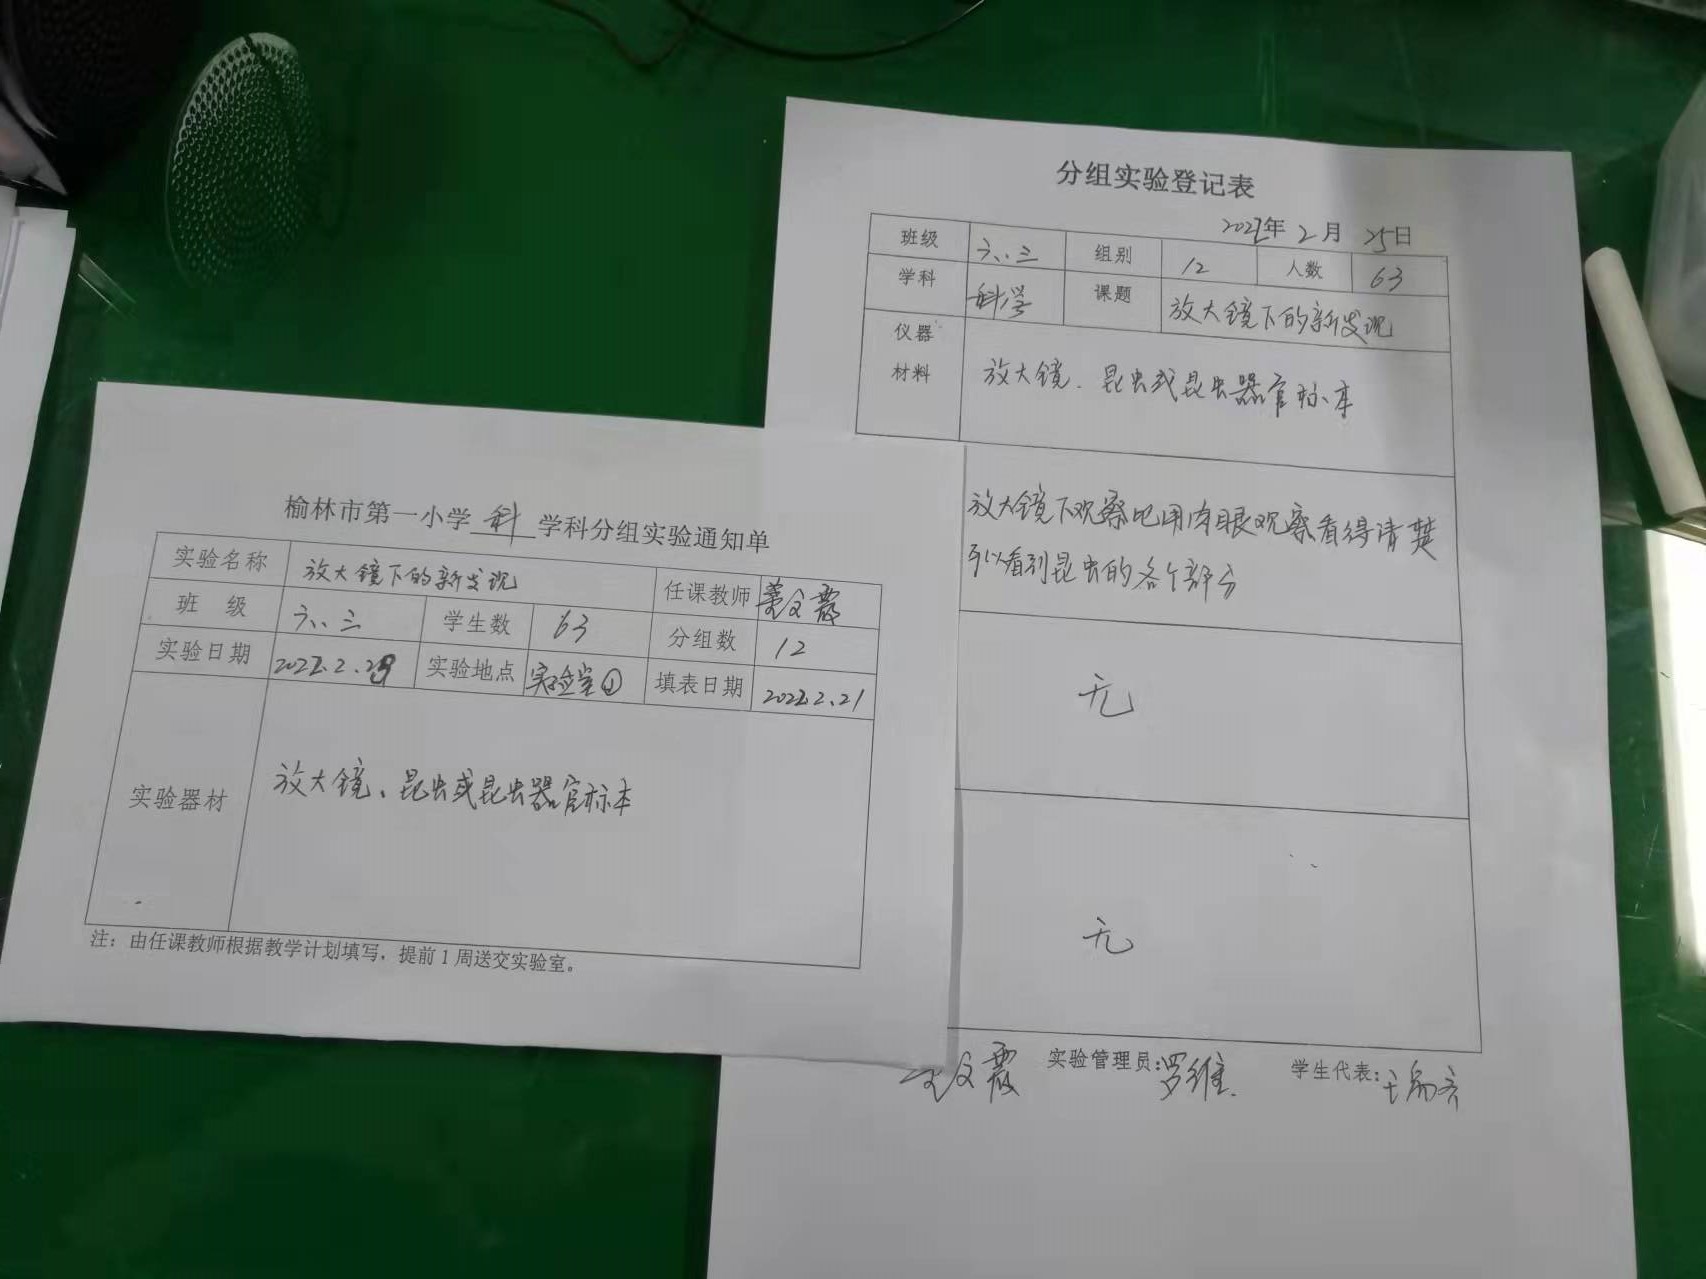 分组实验登记表
2022年 2月 25日
班级 六.三 组别 12 人数 63
学科 科学 课题 放大镜下的新发现
仪器
材料 放大镜、昆虫或昆虫器官标本
放大镜下观察比用肉眼观察看得清楚
可以看到昆虫的各个部分
无
无
文霞 实验管理员:罗维. 学生代表:
榆林市第一小学 科 学科分组实验通知单
实验名称 放大镜下的新发现 任课教师 文霞
班 级 六.三 学生数 63 分组数 12
实验日期 2022.2. 实验地点 实验室① 填表日期 2022.2.21
实验器材 放大镜、昆虫或昆虫器官标本
注：由任课教师根据教学计划填写，提前1周送交实验室。